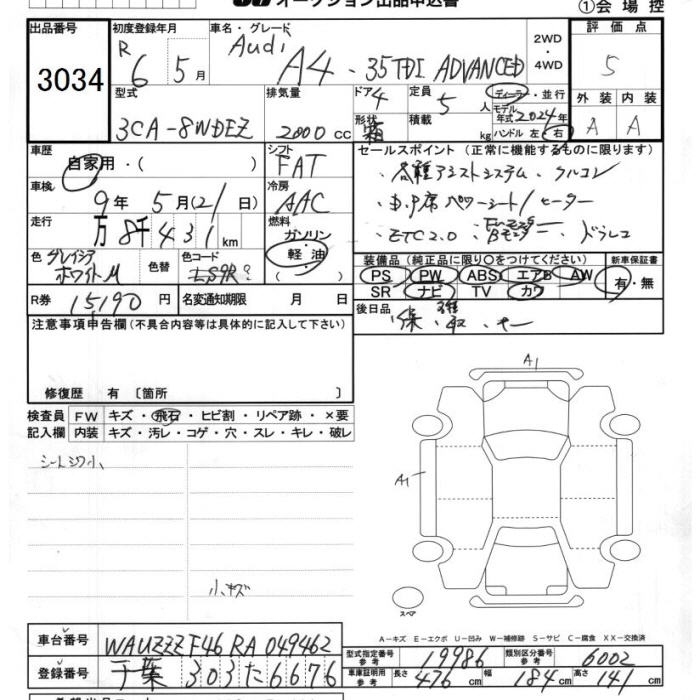 オークション出品申込書
①会場控
出品番号 3034
初度登録年月 R 6年 5月
車名・グレード Audi A4 - 35TDI ADVANCED
2WD・4WD
評価点 5
型式 3CA-8WDEZ
排気量 2000 cc
ドア 4
形状 箱
定員 5人
積載 kg
ディーラー・並行
モデル年式 2024年
ハンドル 左 右
外装 A
内装 A
車歴 自家用・( )
シフト FAT
車検 9年 5月(21日)
冷房 AAC
走行 万 8千431km
燃料 ガソリン・軽油
色 グレイシア ホワイトM
色替
色コード LS9R?
R券 15190円
名変通知期限 月 日
セールスポイント(正常に機能するものに限ります)
・各種アシストシステム・クルコン
席パワーシート/ヒーター
・ETC2.0 ・ドラレコ
装備品(純正品に限り〇をつけてください)
PS PW ABS エアB AW
SR ナビ TV カワ
新車保証書 有・無
後日品
注意事項申告欄(不具合内容等は具体的に記入して下さい)
修復歴 有〔箇所 〕
検査員記入欄
FW キズ・飛石・ヒビ割・リペア跡・×要
内装 キズ・汚レ・コゲ・穴・スレ・キレ・破レ
シートシワ小
小キズ
A1
A1
スペア
A-キズ E-エクボ U-凹み W-補修跡 S-サビ C-腐食 XX-交換済
車台番号 WAUZZZF46RA049462
登録番号 千葉 303 た 6676
型式指定番号 参考 19986
類別区分番号 参考 6002
車庫証明用 参考 長さ 476cm 幅 184cm 高さ 141cm